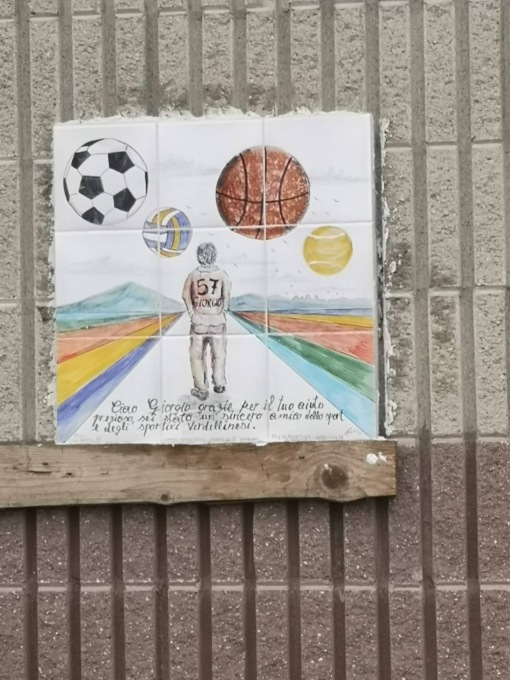 57
GIORGIO
Ciao Giorgio grazie per il tuo aiuto
prezioso sei stato un sincero amico dello sport
e degli sportivi Verdellinesi.